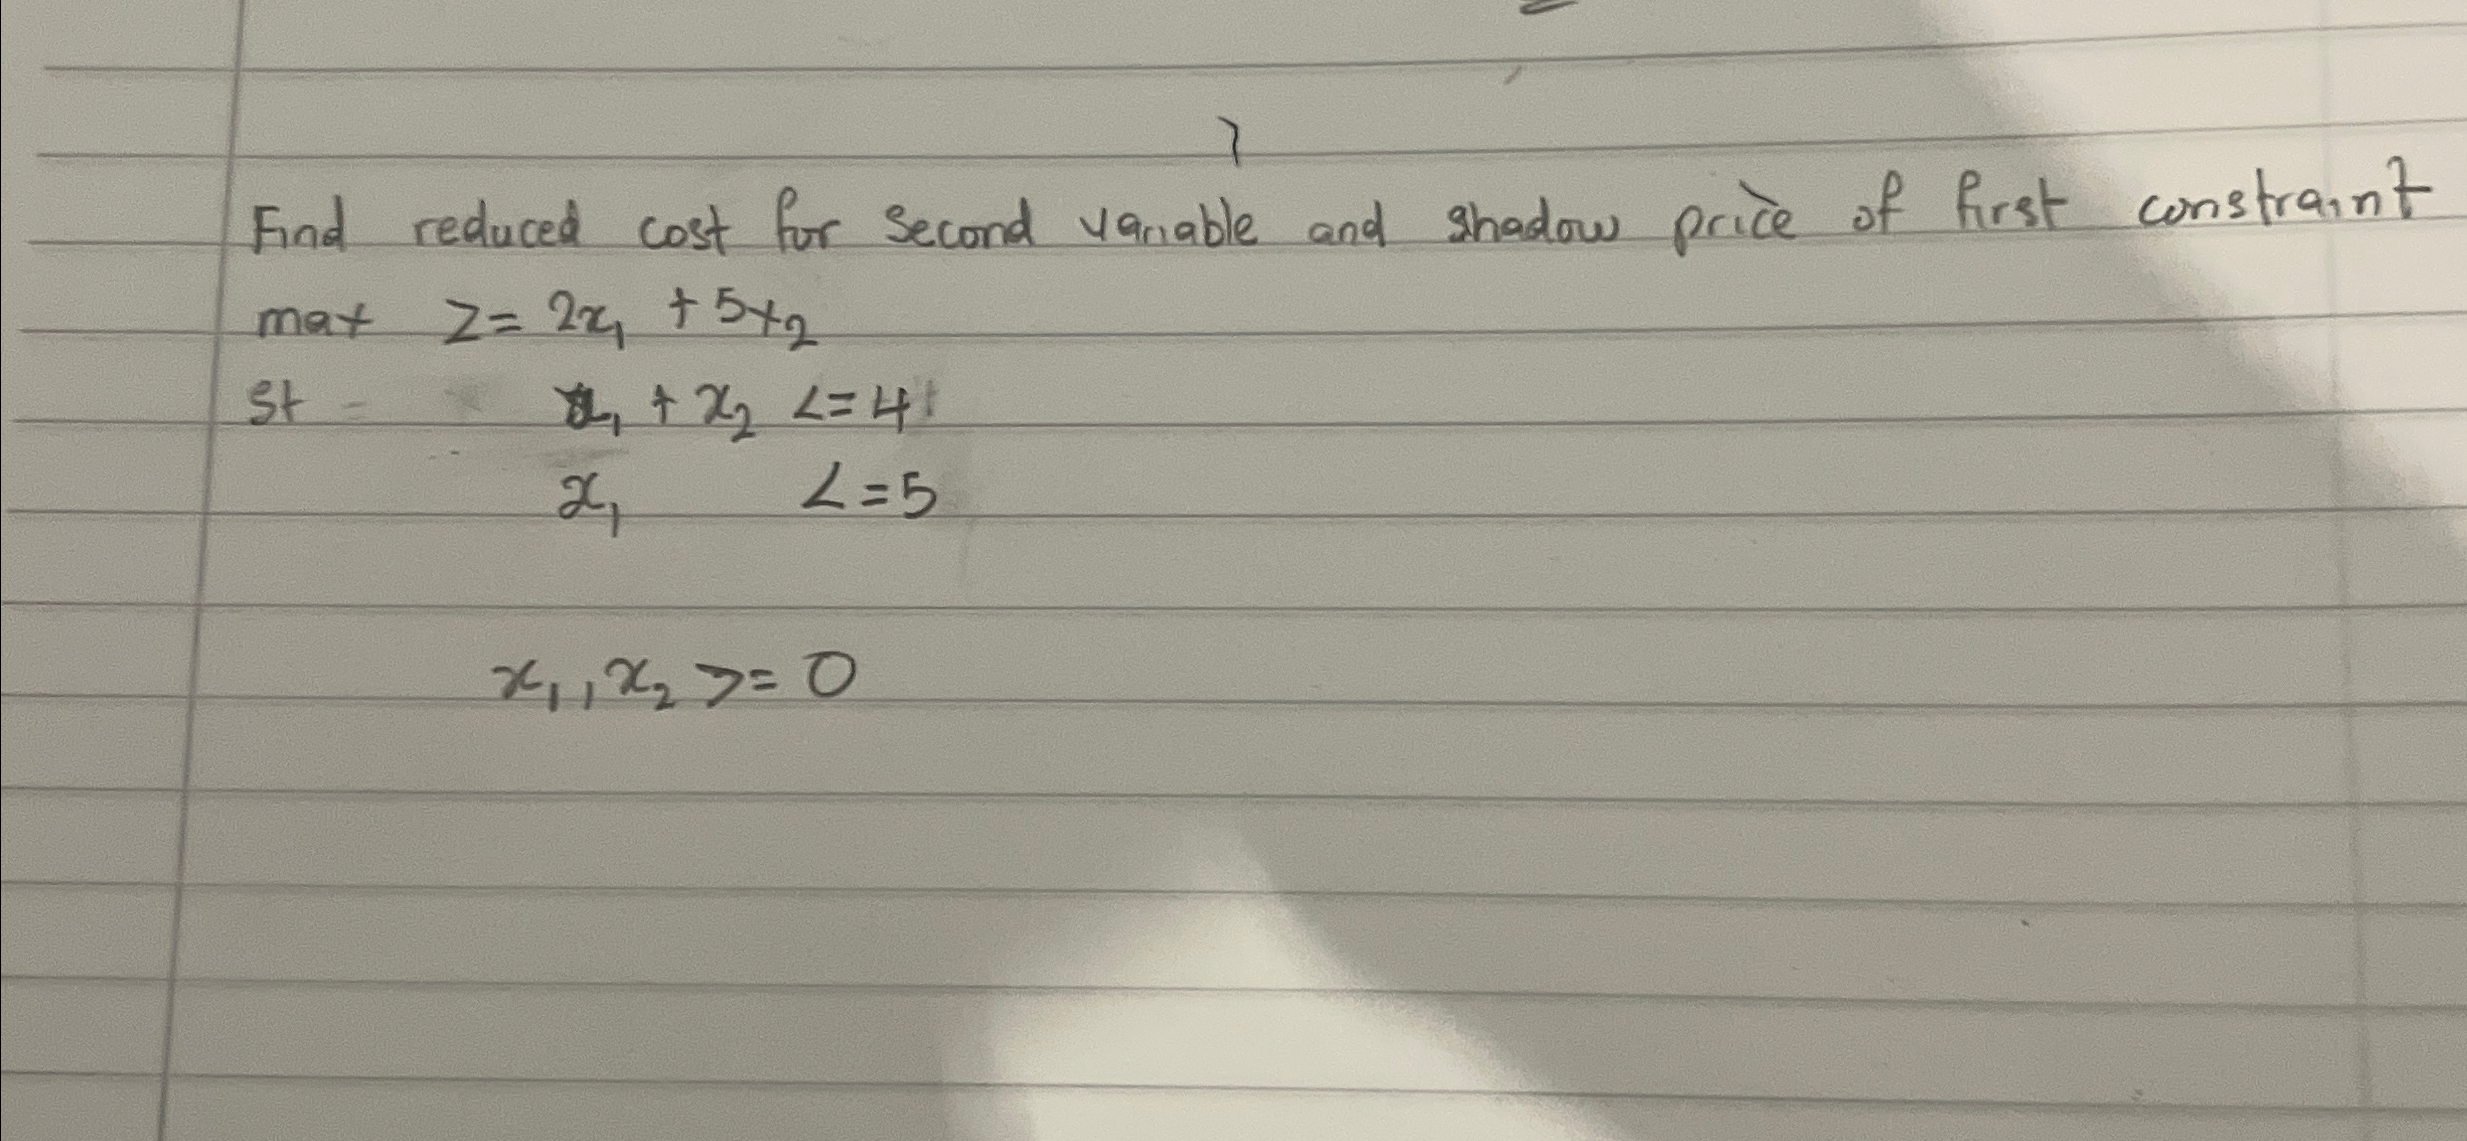 Find reduced cost for second variable and shadow price of first constraint
max Z = 2x₁ + 5x₂
st x₁ + x₂ <= 4
x₁ <= 5
x₁, x₂ >= 0